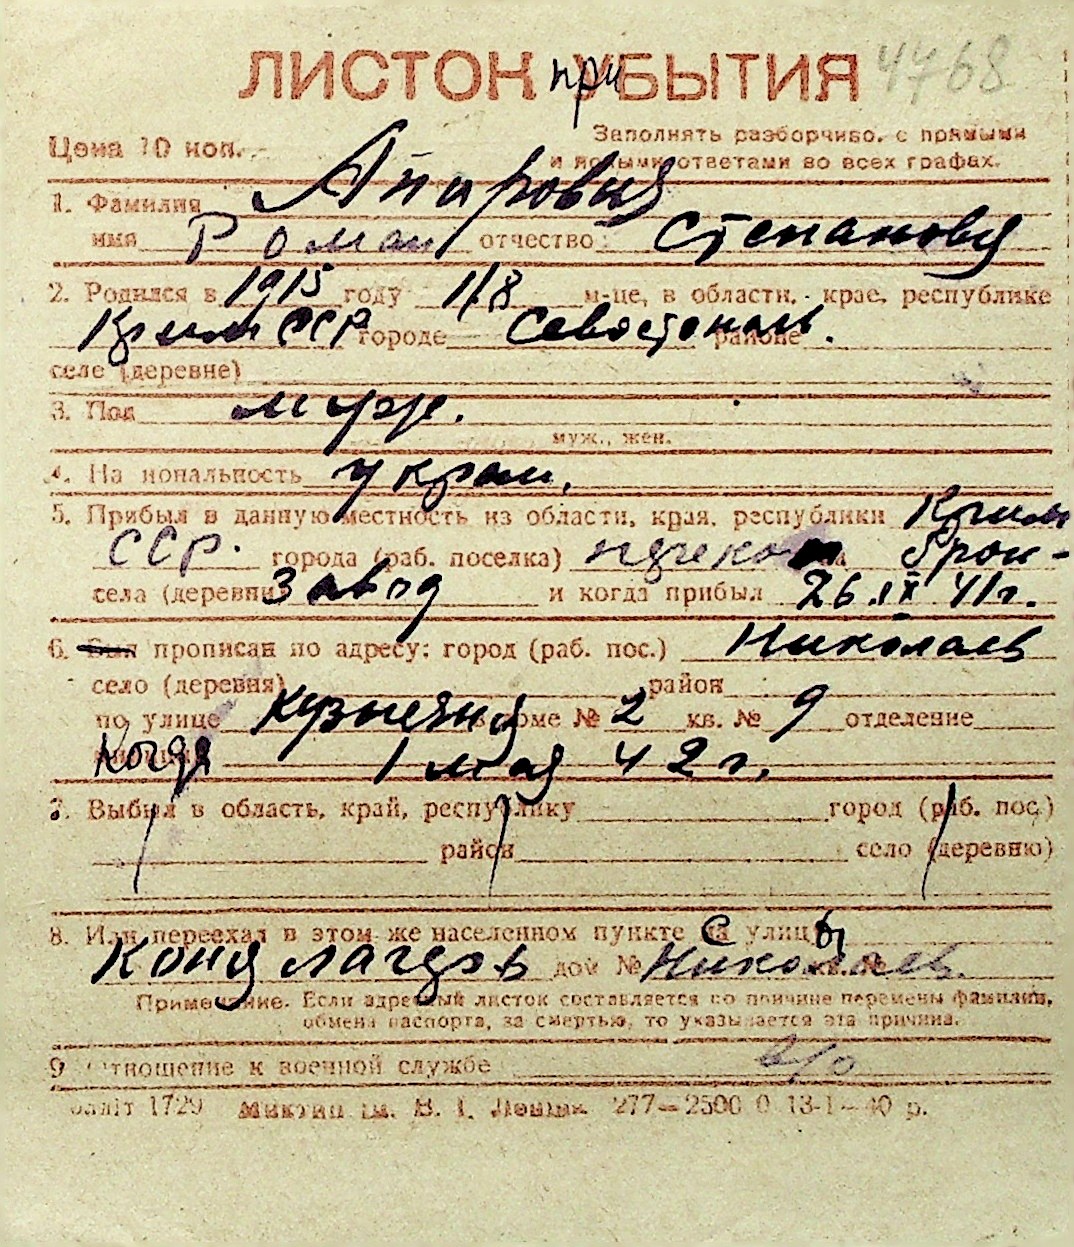 ЛИСТОК при УБЫТИЯ 4768
Цена 10 коп. Заполнять разборчиво, с прямыми
и ясными ответами во всех графах.
1. Фамилия
имя Роман отчество
2. Родился в 1915 году 1/8 м-це, в области, крае, республике
Крым ССР городе Севастополь. районе
селе (деревне)
3. Пол муж.
муж., жен.
4. Национальность украин.
5. Прибыл в данную местность из области, края, республики Крым
ССР. города (раб. поселка)
села (деревни) завод и когда прибыл 26.IX 41 г.
6. Был прописан по адресу: город (раб. пос.) Николаев
село (деревня) район
по улице в доме № 2 кв. № 9 отделение
Когда 1 мая 42 г.
7. Выбыл в область, край, республику город (раб. пос.)
район село (деревню)
8. Или переехал в этом же населенном пункте с улицы
дом № Николаев.
Примечание. Если адресный листок составляется по причине перемены фамилии,
обмена паспорта, за смертью, то указывается эта причина.
9 Отношение к военной службе в/о
1729 277—2500 0 13-1—40 р.